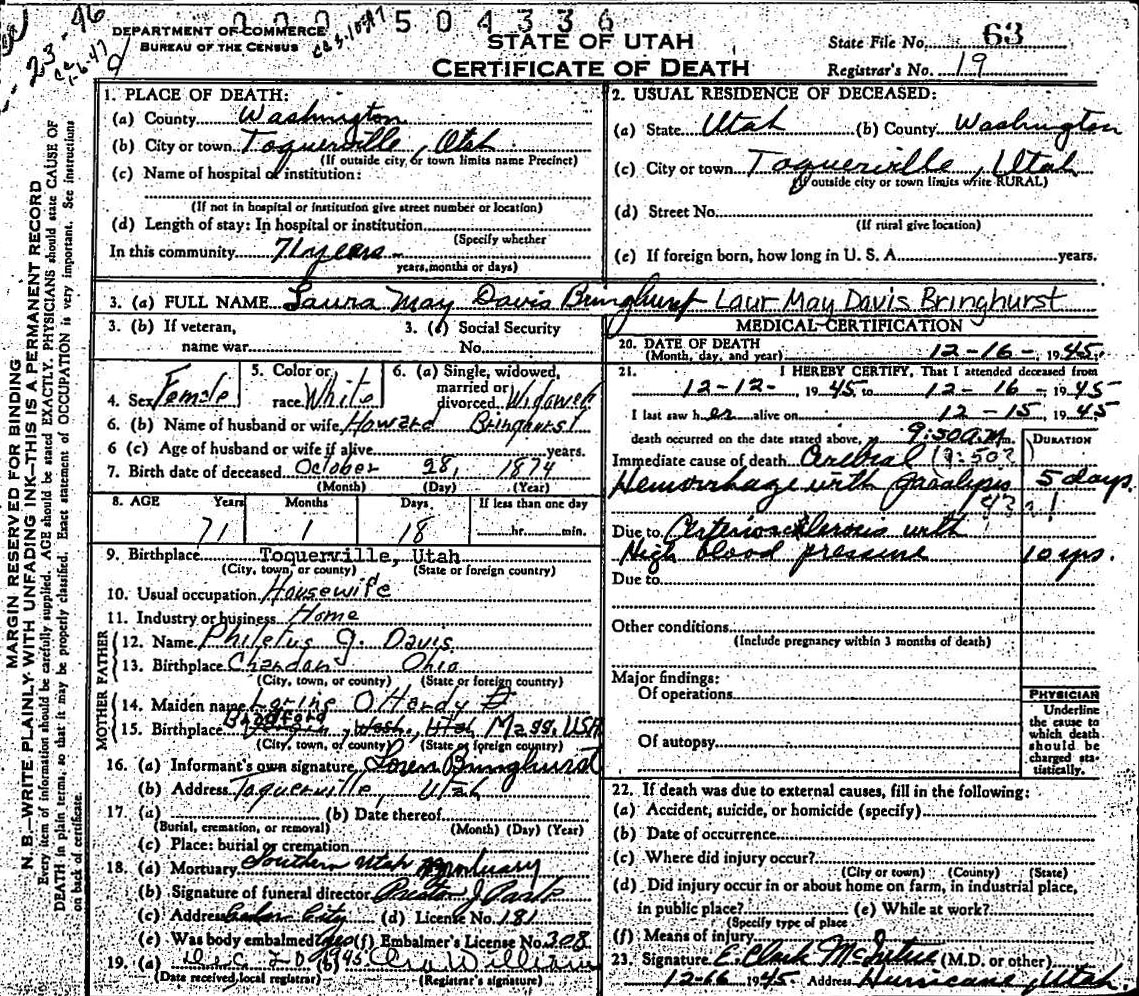 000 504336
DEPARTMENT OF COMMERCE
BUREAU OF THE CENSUS
STATE OF UTAH
CERTIFICATE OF DEATH
State File No. 63
Registrar's No. 19
MARGIN RESERVED FOR BINDING
N. B.—WRITE PLAINLY WITH UNFADING INK—THIS IS A PERMANENT RECORD
Every item of information should be carefully supplied. AGE should be stated EXACTLY. PHYSICIANS should state CAUSE OF
DEATH in plain terms, so that it may be properly classified. Exact statement of OCCUPATION is very important. See instructions
on back of certificate.
1. PLACE OF DEATH:
(a) County Washington
(b) City or town Toquerville, Utah
(If outside city or town limits name Precinct)
(c) Name of hospital or institution:
(If not in hospital or institution give street number or location)
(d) Length of stay: In hospital or institution
(Specify whether
In this community 71 years
years, months or days)
2. USUAL RESIDENCE OF DECEASED:
(a) State Utah (b) County Washington
(c) City or town Toquerville, Utah
(If outside city or town limits write RURAL)
(d) Street No.
(If rural give location)
(e) If foreign born, how long in U. S. A. years.
3. (a) FULL NAME Laura May Davis Bringhurst Laur May Davis Bringhurst
3. (b) If veteran,
name war
3. (c) Social Security
No.
4. Sex Female
5. Color or
race White
6. (a) Single, widowed,
married or
divorced Widowed
6. (b) Name of husband or wife Howard Bringhurst
6 (c) Age of husband or wife if alive years.
7. Birth date of deceased October 28, 1874
(Month) (Day) (Year)
8. AGE Years Months Days If less than one day
71 1 18 hr. min.
9. Birthplace Toquerville, Utah
(City, town, or county) (State or foreign country)
10. Usual occupation Housewife
11. Industry or business Home
FATHER
12. Name Philetus J. Davis
13. Birthplace Ohio
(City, town, or county) (State or foreign country)
MOTHER
14. Maiden name Hardy
15. Birthplace Bradford Wash., Utah Mass. USA
(City, town, or county) (State or foreign country)
16. (a) Informant's own signature Loren Bringhurst
(b) Address Toquerville, Utah
17. (a) (b) Date thereof
(Burial, cremation, or removal) (Month) (Day) (Year)
(c) Place: burial or cremation
18. (a) Mortuary Southern Utah Mortuary
(b) Signature of funeral director
(c) Address Cedar City (d) License No. 181
(e) Was body embalmed Yes (f) Embalmer's License No. 308
19. (a) Dec 20 1945 (b)
(Date received local registrar) (Registrar's signature)
MEDICAL CERTIFICATION
20. DATE OF DEATH
(Month, day, and year) 12-16-, 1945.
21. I HEREBY CERTIFY, That I attended deceased from
12-12-, 1945 to 12-16-, 1945
I last saw her alive on 12-15, 1945
death occurred on the date stated above, 9:50 A.M. m.
DURATION
Immediate cause of death Cerebral (9:50?)
Hemorrhage with paralysis 5 days.
Due to Arteriosclerosis with
High blood pressure 10 yrs.
Due to
Other conditions
(Include pregnancy within 3 months of death)
Major findings:
Of operations
Of autopsy
PHYSICIAN
Underline
the cause to
which death
should be
charged sta-
tistically.
22. If death was due to external causes, fill in the following:
(a) Accident, suicide, or homicide (specify)
(b) Date of occurrence
(c) Where did injury occur?
(City or town) (County) (State)
(d) Did injury occur in or about home on farm, in industrial place,
in public place? (e) While at work?
(Specify type of place
(f) Means of injury
23. Signature E. Clark McIntire (M.D. or other)
12-16 1945. Address Hurricane, Utah.